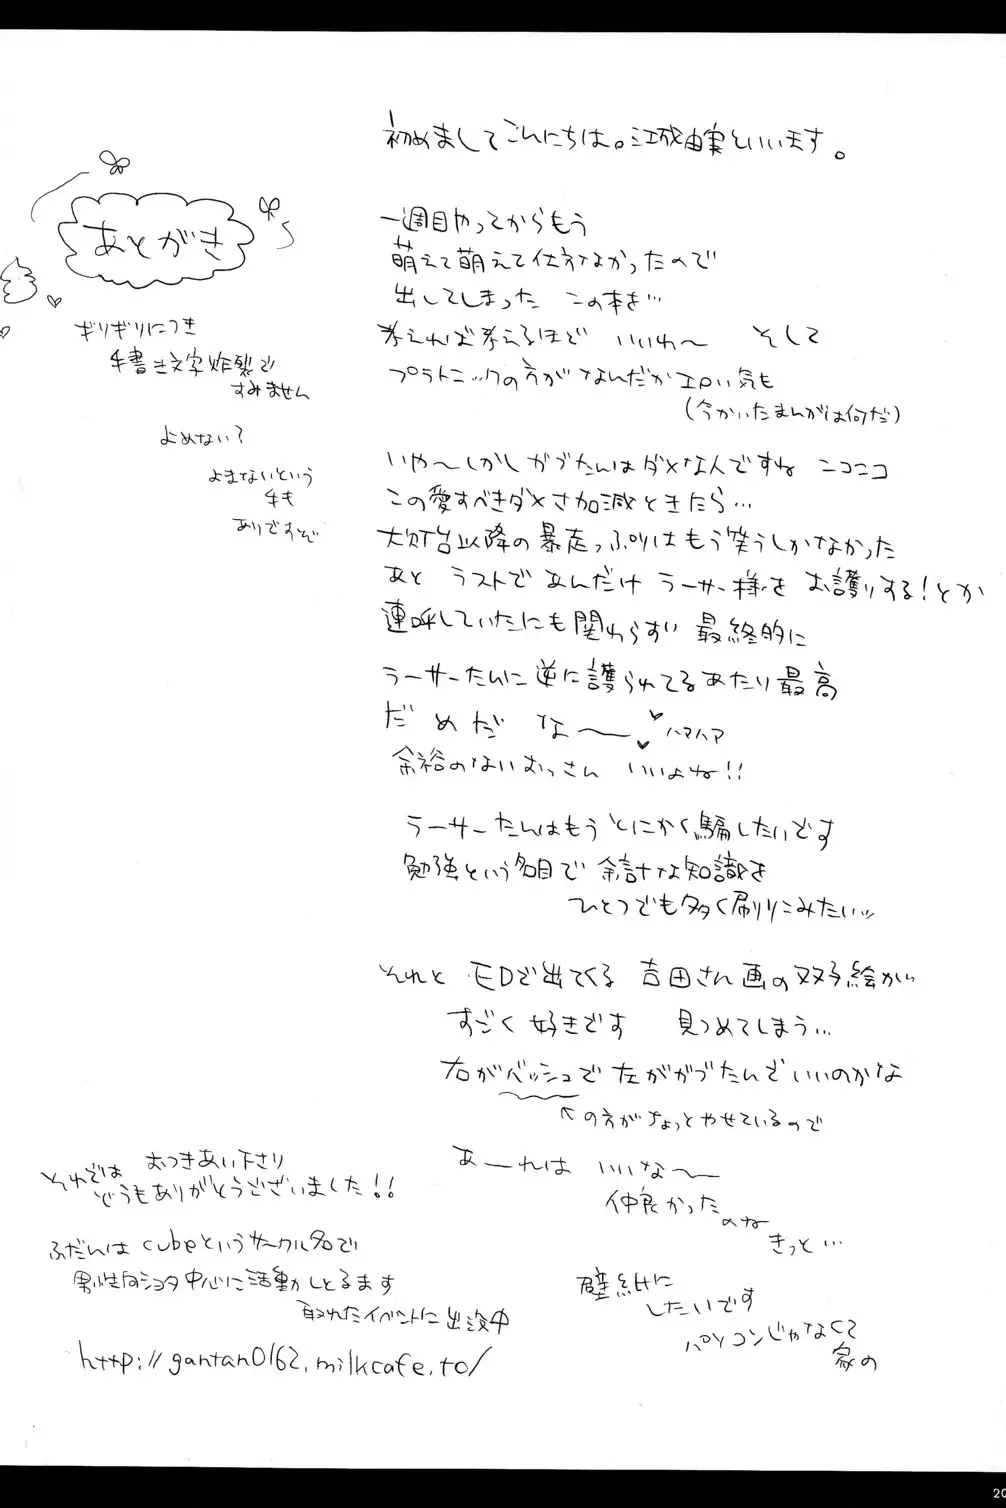 あとがき
ギリギリにつき
手書き文字炸裂で
すみません
よめない?
よまないという
手も
ありですぞ
初めましてこんにちは。江成由実といいます。
一週目やってからもう
萌えて萌えて仕方なかったので
出してしまった この本を…
考えれば考えるほど いいわ〜 そして
プラトニックの方がなんだかエロい気も
(今かいたまんがは何だ)
いや〜しかしガブたんはダメな人ですね ニコニコ
この愛すべきダメさ加減ときたら…
大灯台以降の暴走っぷりはもう笑うしかなかった
あと ラストであんだけ ラーサー様を お護りする!とか
連呼していたにも関わらず 最終的に
ラーサーたんに逆に護られてるあたり最高
だめだ な〜 ハァハァ
余裕のないおっさん いいよね!!
ラーサーたんはもうとにかく騙したいです
勉強という名目で 余計な知識を
ひとつでも多く刷りこみたい…
それと EDで出てくる 吉田さん画の双子絵が
すごく 好きです 見つめてしまう…
右がバッシュで左がガブたんでいいのかな
↖の方がちょっとやせているので
あーれは いいな〜
仲良かった
のね
きっと…
壁紙に
したいです
パソコンじゃなくて
家の
それでは おつきあい下さり
どうもありがとうございました!!
ふだんは cubeというサークル名で
男性向ショタ中心に活動しとるます
取れたイベントに出没中
http://gantan0162.milkcafe.to/
20